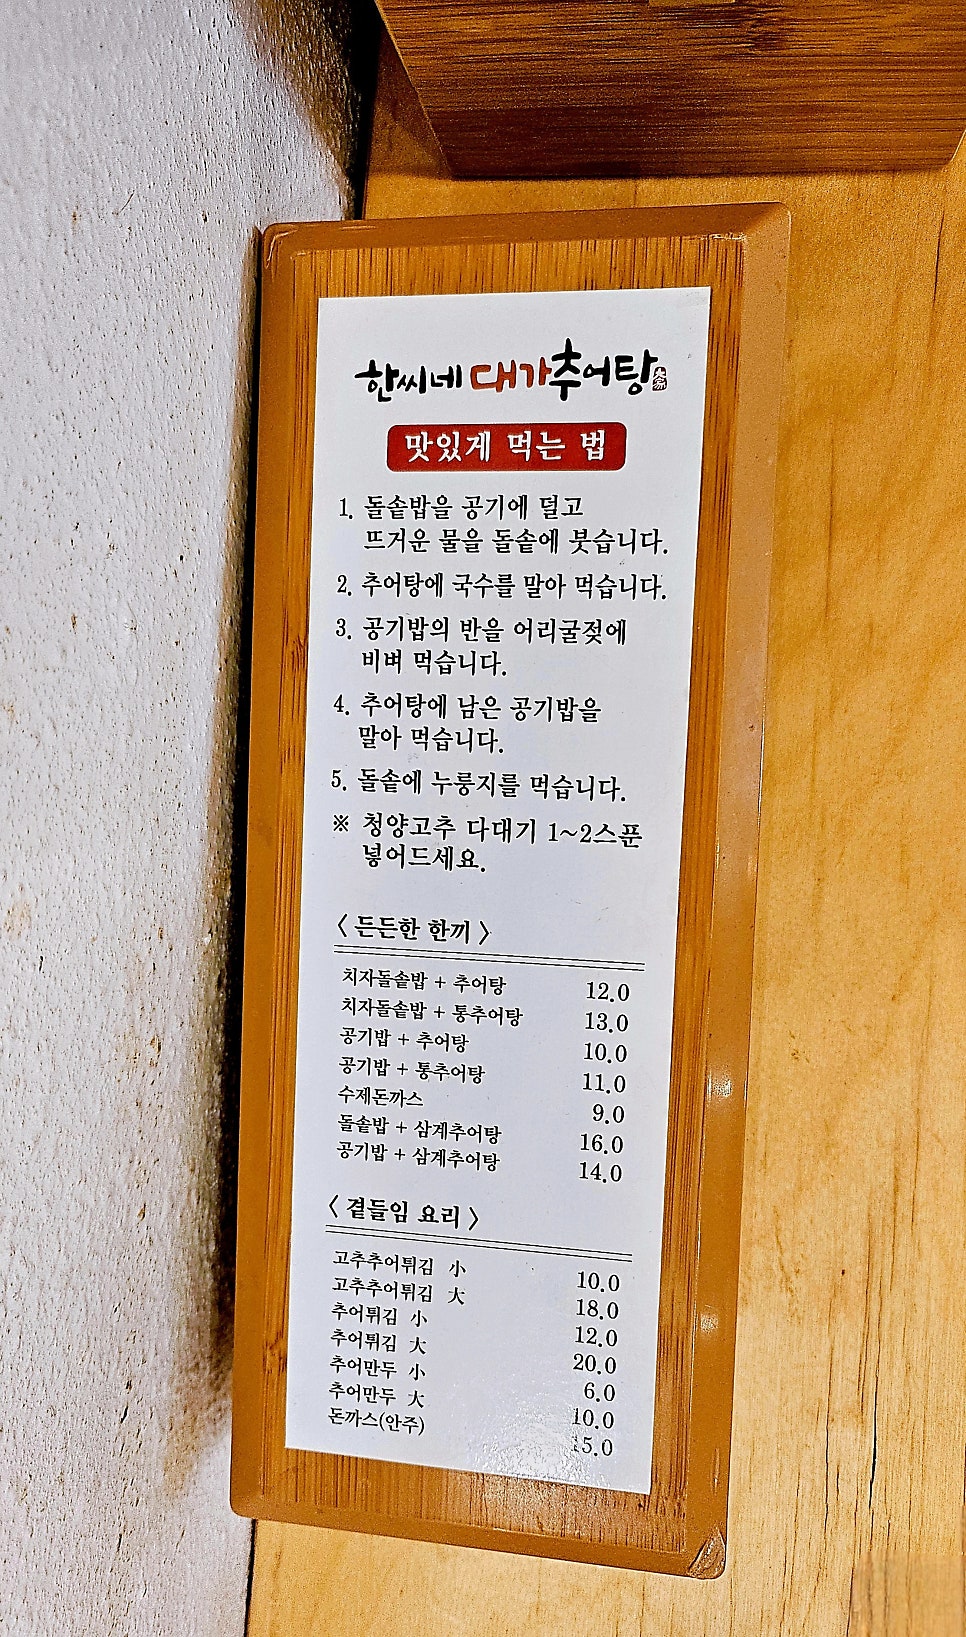 한씨네 대가추어탕
맛있게 먹는 법
1. 돌솥밥을 공기에 덜고
뜨거운 물을 돌솥에 붓습니다.
2. 추어탕에 국수를 말아 먹습니다.
3. 공기밥의 반을 어리굴젖에
비벼 먹습니다.
4. 추어탕에 남은 공기밥을
말아 먹습니다.
5. 돌솥에 누룽지를 먹습니다.
※ 청양고추 다대기 1~2스푼
넣어드세요.
〈 든든한 한끼 〉
치자돌솥밥 + 추어탕 12.0
치자돌솥밥 + 통추어탕 13.0
공기밥 + 추어탕 10.0
공기밥 + 통추어탕 11.0
수제돈까스 9.0
돌솥밥 + 삼계추어탕 16.0
공기밥 + 삼계추어탕 14.0
〈 곁들임 요리 〉
고추추어튀김 小 10.0
고추추어튀김 大 18.0
추어튀김 小 12.0
추어튀김 大 20.0
추어만두 小 6.0
추어만두 大 10.0
돈까스(안주) 15.0